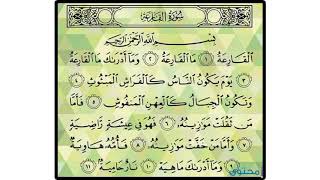 سُورَةُ القَارِعَةِ
بِسْمِ اللَّهِ الرَّحْمَٰنِ الرَّحِيمِ
الْقَارِعَةُ ١ مَا الْقَارِعَةُ ٢ وَمَا أَدْرَاكَ مَا الْقَارِعَةُ
٣ يَوْمَ يَكُونُ النَّاسُ كَالْفَرَاشِ الْمَبْثُوثِ ٤
وَتَكُونُ الْجِبَالُ كَالْعِهْنِ الْمَنْفُوشِ ٥ فَأَمَّا
مَنْ ثَقُلَتْ مَوَازِينُهُ ٦ فَهُوَ فِي عِيشَةٍ رَاضِيَةٍ
٧ وَأَمَّا مَنْ خَفَّتْ مَوَازِينُهُ ٨ فَأُمُّهُ هَاوِيَةٌ
٩ وَمَا أَدْرَاكَ مَا هِيَهْ ١٠ نَارٌ حَامِيَةٌ ١١
محتوى